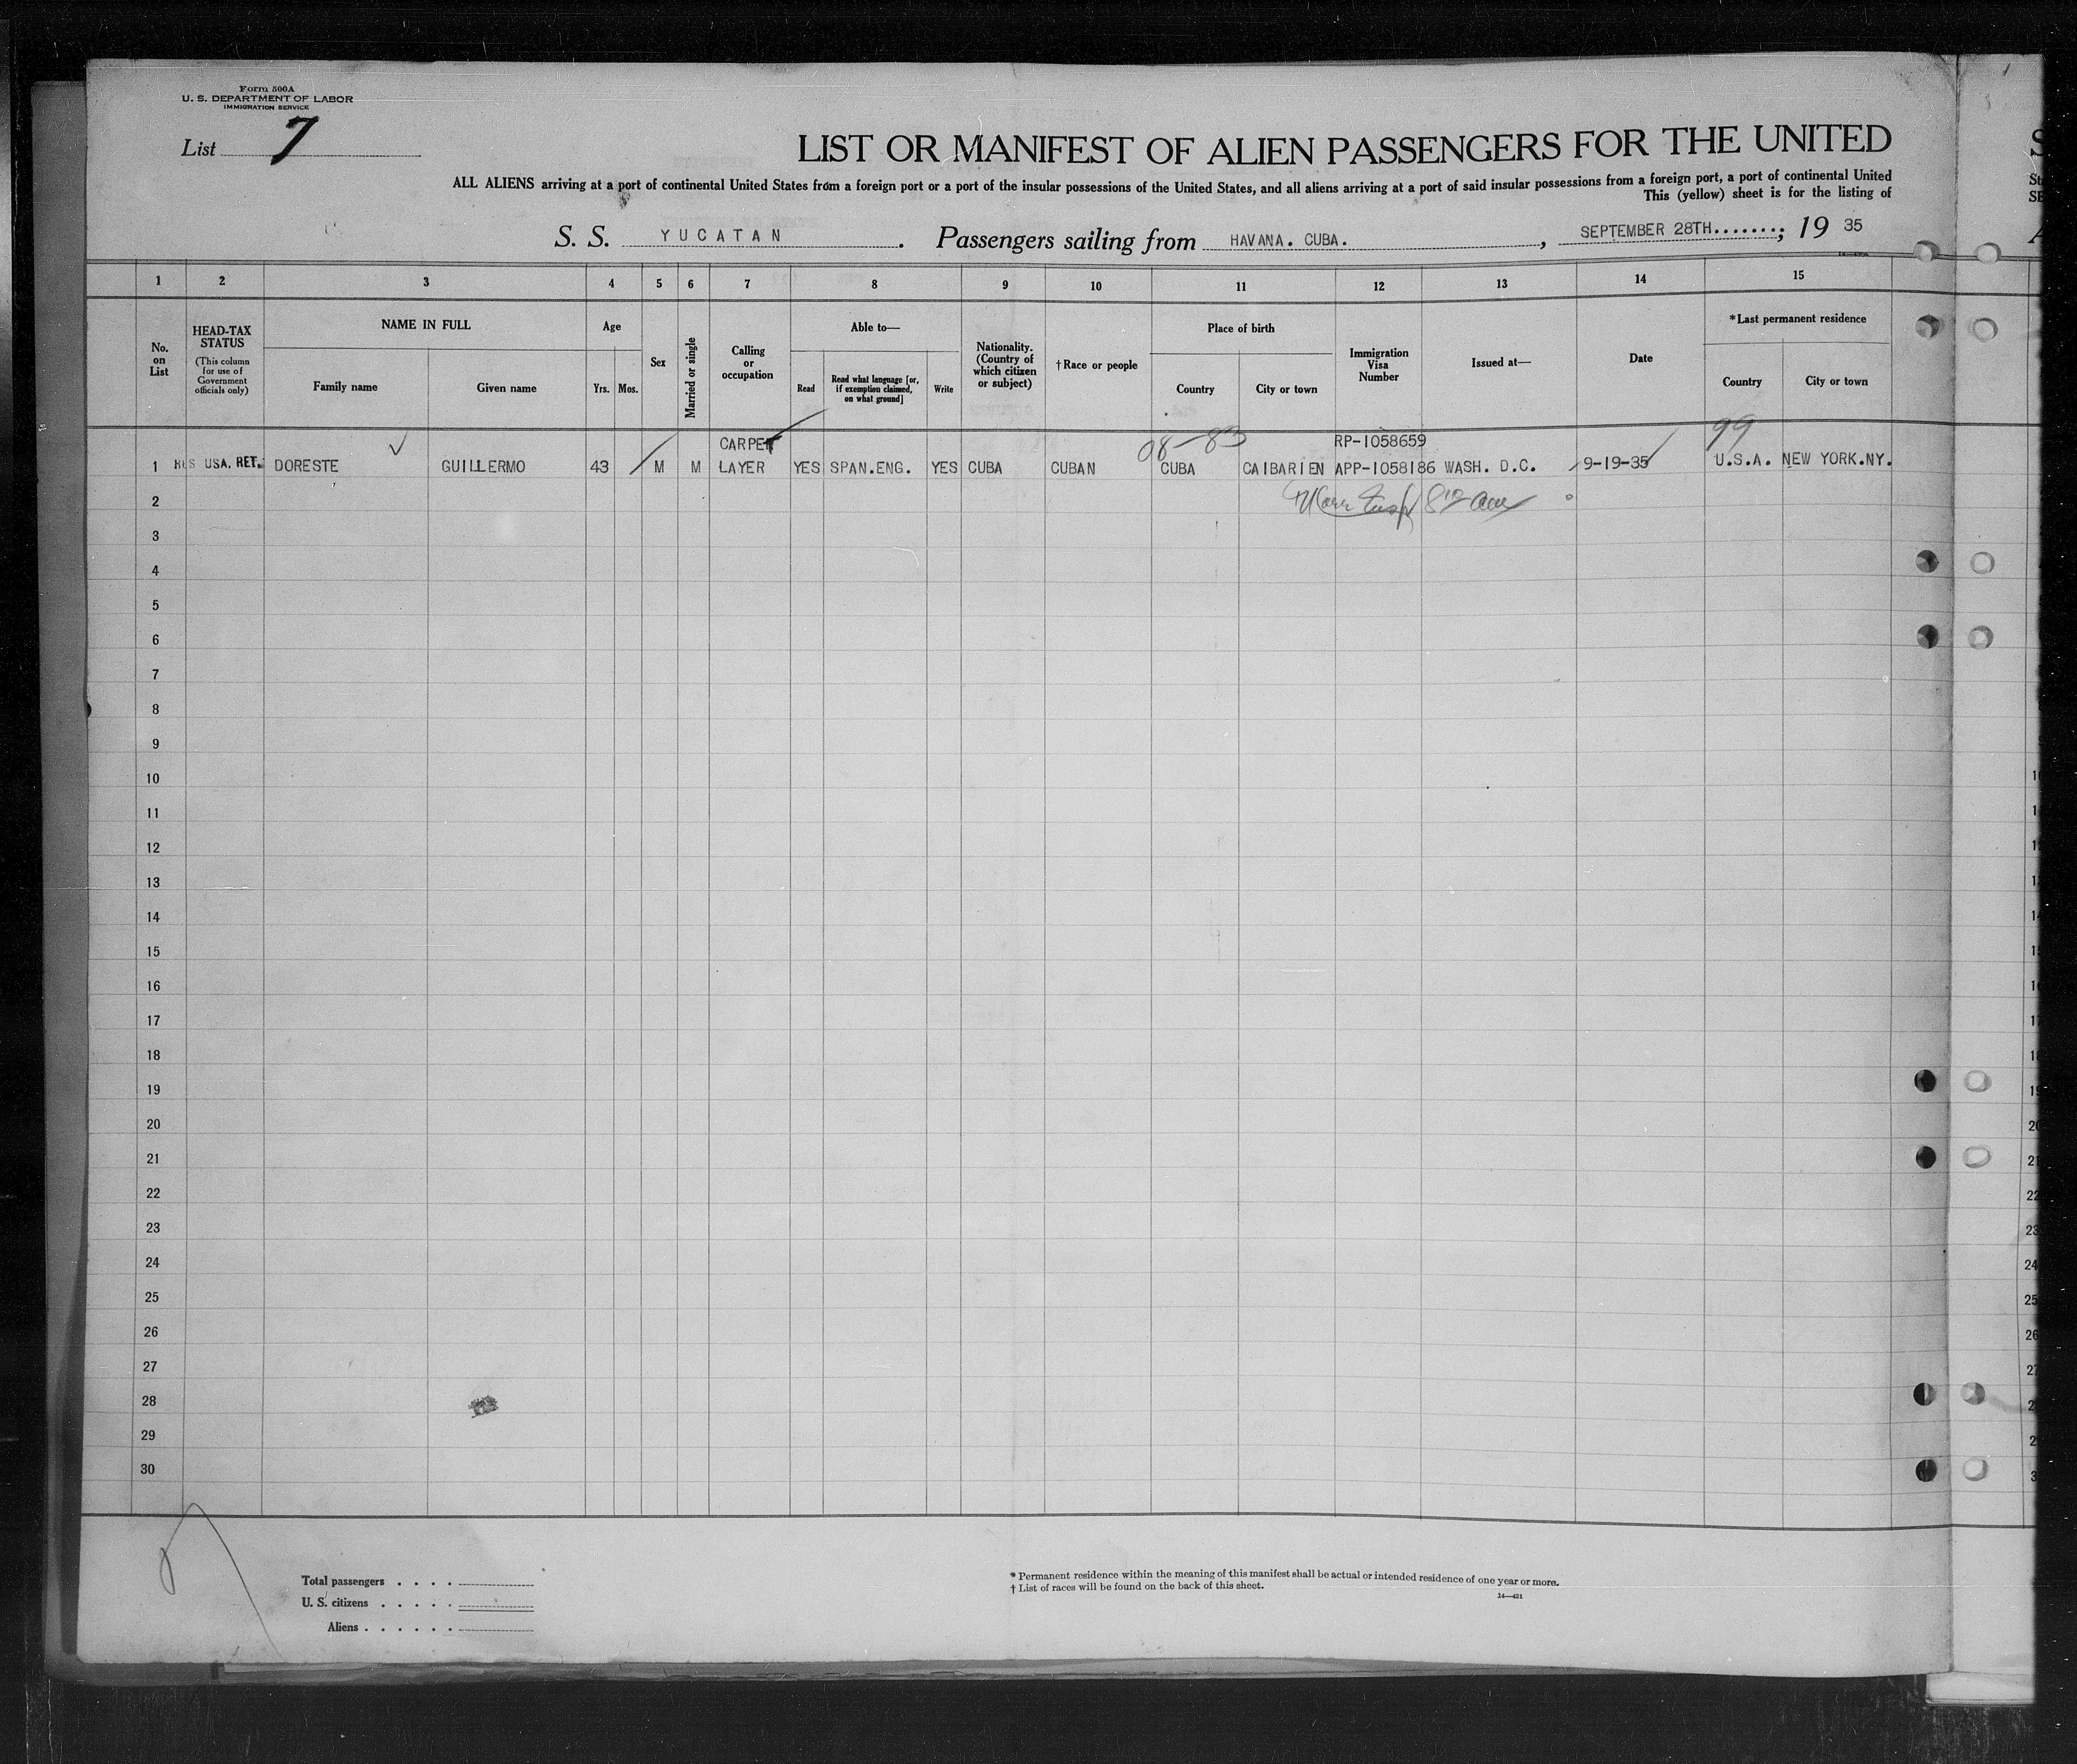 Form 500A
U. S. DEPARTMENT OF LABOR
IMMIGRATION SERVICE
List 7
LIST OR MANIFEST OF ALIEN PASSENGERS FOR THE UNITED
ALL ALIENS arriving at a port of continental United States from a foreign port or a port of the insular possessions of the United States, and all aliens arriving at a port of said insular possessions from a foreign port, a port of continental United
This (yellow) sheet is for the listing of
S. S. YUCATAN. Passengers sailing from HAVANA. CUBA., SEPTEMBER 28TH.......; 19 35
1 2 3 4 5 6 7 8 9 10 11 12 13 14 15
No. on List
HEAD-TAX STATUS
(This column for use of Government officials only)
NAME IN FULL
Family name
Given name
Age
Yrs. Mos.
Sex
Married or single
Calling or occupation
Able to—
Read
Read what language [or, if exemption claimed, on what ground]
Write
Nationality. (Country of which citizen or subject)
†Race or people
Place of birth
Country
City or town
Immigration Visa Number
Issued at—
Date
*Last permanent residence
Country
City or town
CARPET 08-83 RP-1058659 99
1 RES USA. RET. DORESTE GUILLERMO 43 M M LAYER YES SPAN.ENG. YES CUBA CUBAN CUBA CAIBARIEN APP-1058186 WASH. D.C. 9-19-35 U.S.A. NEW YORK.NY.
2
3
4
5
6
7
8
9
10
11
12
13
14
15
16
17
18
19
20
21
22
23
24
25
26
27
28
29
30
Total passengers . . . .
U. S. citizens . . . . .
Aliens . . . . . .
* Permanent residence within the meaning of this manifest shall be actual or intended residence of one year or more.
† List of races will be found on the back of this sheet.
14—431